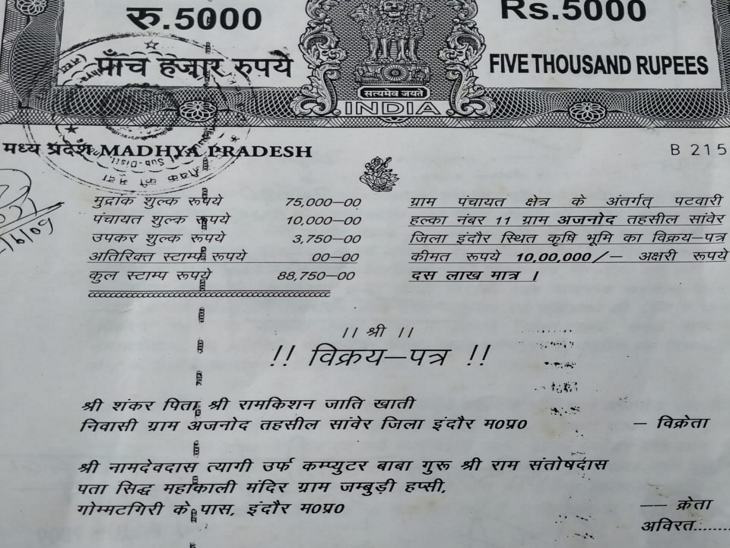 रु.5000 Rs.5000
पाँच हजार रुपये FIVE THOUSAND RUPEES
सत्यमेव जयते
INDIA
मध्य प्रदेश MADHYA PRADESH B 215
मुद्रांक शुल्क रूपये 75,000—00
पंचायत शुल्क रूपये 10,000—00
उपकर शुल्क रूपये 3,750—00
अतिरिक्त स्टाम्प रूपये 00—00
कुल स्टाम्प रूपये 88,750—00
ग्राम पंचायत क्षेत्र के अंतर्गत् पटवारी
हल्का नंबर 11 ग्राम अजनोद तहसील सांवेर
जिला इंदौर स्थित कृषि भूमि का विक्रय—पत्र
कीमत रूपये 10,00,000/— अक्षरी रूपये
दस लाख मात्र ।
।। श्री ।।
!! विक्रय—पत्र !!
श्री शंकर पिता श्री रामकिशन जाति खाती
निवासी ग्राम अजनोद तहसील सांवेर जिला इंदौर म0प्र0 — विक्रेता
श्री नामदेवदास त्यागी उर्फ कम्प्युटर बाबा गुरू श्री राम संतोषदास
पता सिद्ध महाकाली मंदिर ग्राम जम्बुड़ी हप्सी,
गोम्मटगिरी के पास, इंदौर म0प्र0 — क्रेता
अविरत........